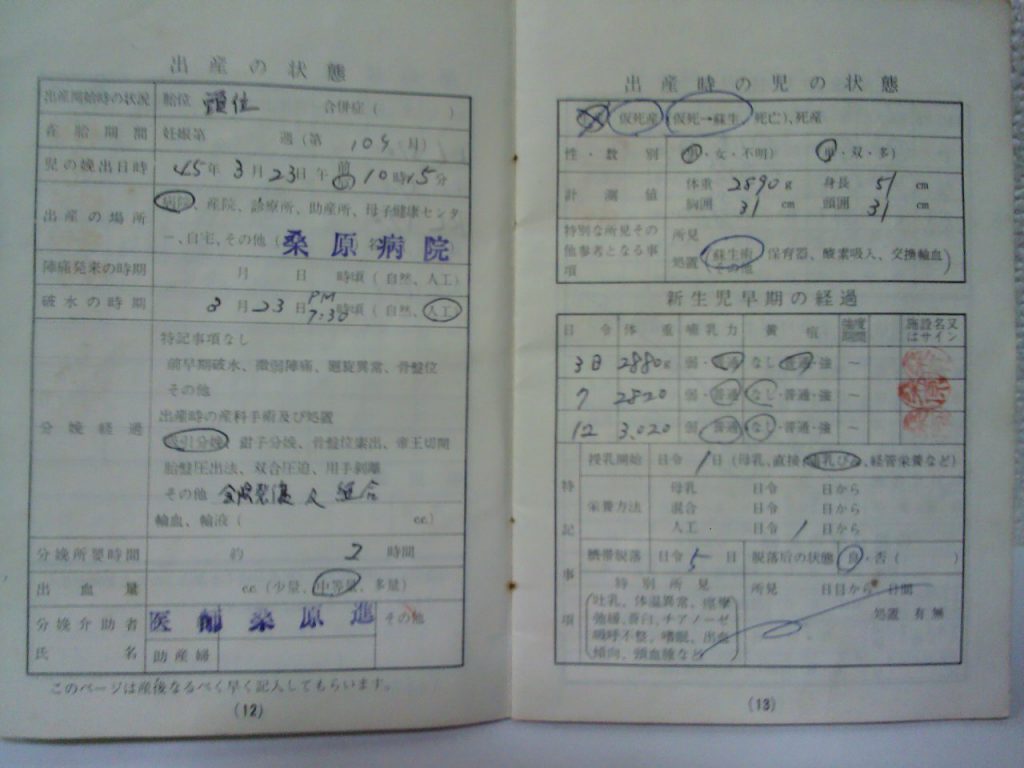 出産の状態
出産開始時の状況 胎位 頭位 合併症( )
在胎期間 妊娠第 週(第 10ヶ月)
児の娩出日時 45年3月23日午 前 10時15分
出産の場所 病院、産院、診療所、助産所、母子健康センタ
ー、自宅、その他( 桑原病院
陣痛発来の時期 月 日 時頃(自然、人工)
破水の時期 3月23日 PM 7:30 時頃(自然、人工)
特記事項なし
前早期破水、微弱陣痛、廻旋異常、骨盤位
その他
分娩経過 出産時の産科手術及び処置
吸引分娩、鉗子分娩、骨盤位索出、帝王切開
胎盤圧出法、双合圧迫、用手剥離
その他
輸血、輸液( cc.)
分娩所要時間 約 2 時間
出血量 cc.(少量、中等量、多量)
分娩介助者 医師 桑原進 その他
氏名 助産婦
このページは産後なるべく早く記入してもらいます。
(12)
出産時の児の状態
仮死産(仮死→蘇生、死亡)、死産
性・数別 男・女・不明) 単・双・多)
計測値 体重 2890g 身長 51 cm
胸囲 31 cm 頭囲 31 cm
特別な所見その他参考となる事項 所見
処置(蘇生術、保育器、酸素吸入、交換輸血)
その他
新生児早期の経過
日令 体重 哺乳力 黄疸 強度期間 施設名又はサイン
3日 2880g 弱・普通 なし・普通・強 ~
7 2820 弱・普通 なし・普通・強 ~
12 3,020 弱・普通 なし・普通・強 ~
特記事項
授乳開始 日令 1日(母乳、直接、哺乳びん、経管栄養など)
栄養方法 母乳 日令 日から
混合 日令 日から
人工 日令 1 日から
臍帯脱落 日令 5 日 脱落后の状態 良・否( )
特別所見 所見 日目から 日間
吐乳、体温異常、痙攣
弛緩、蒼白、チアノーゼ 処置 有 無
呼吸不整、嗜眠、出血
傾向、頭血腫など
(13)